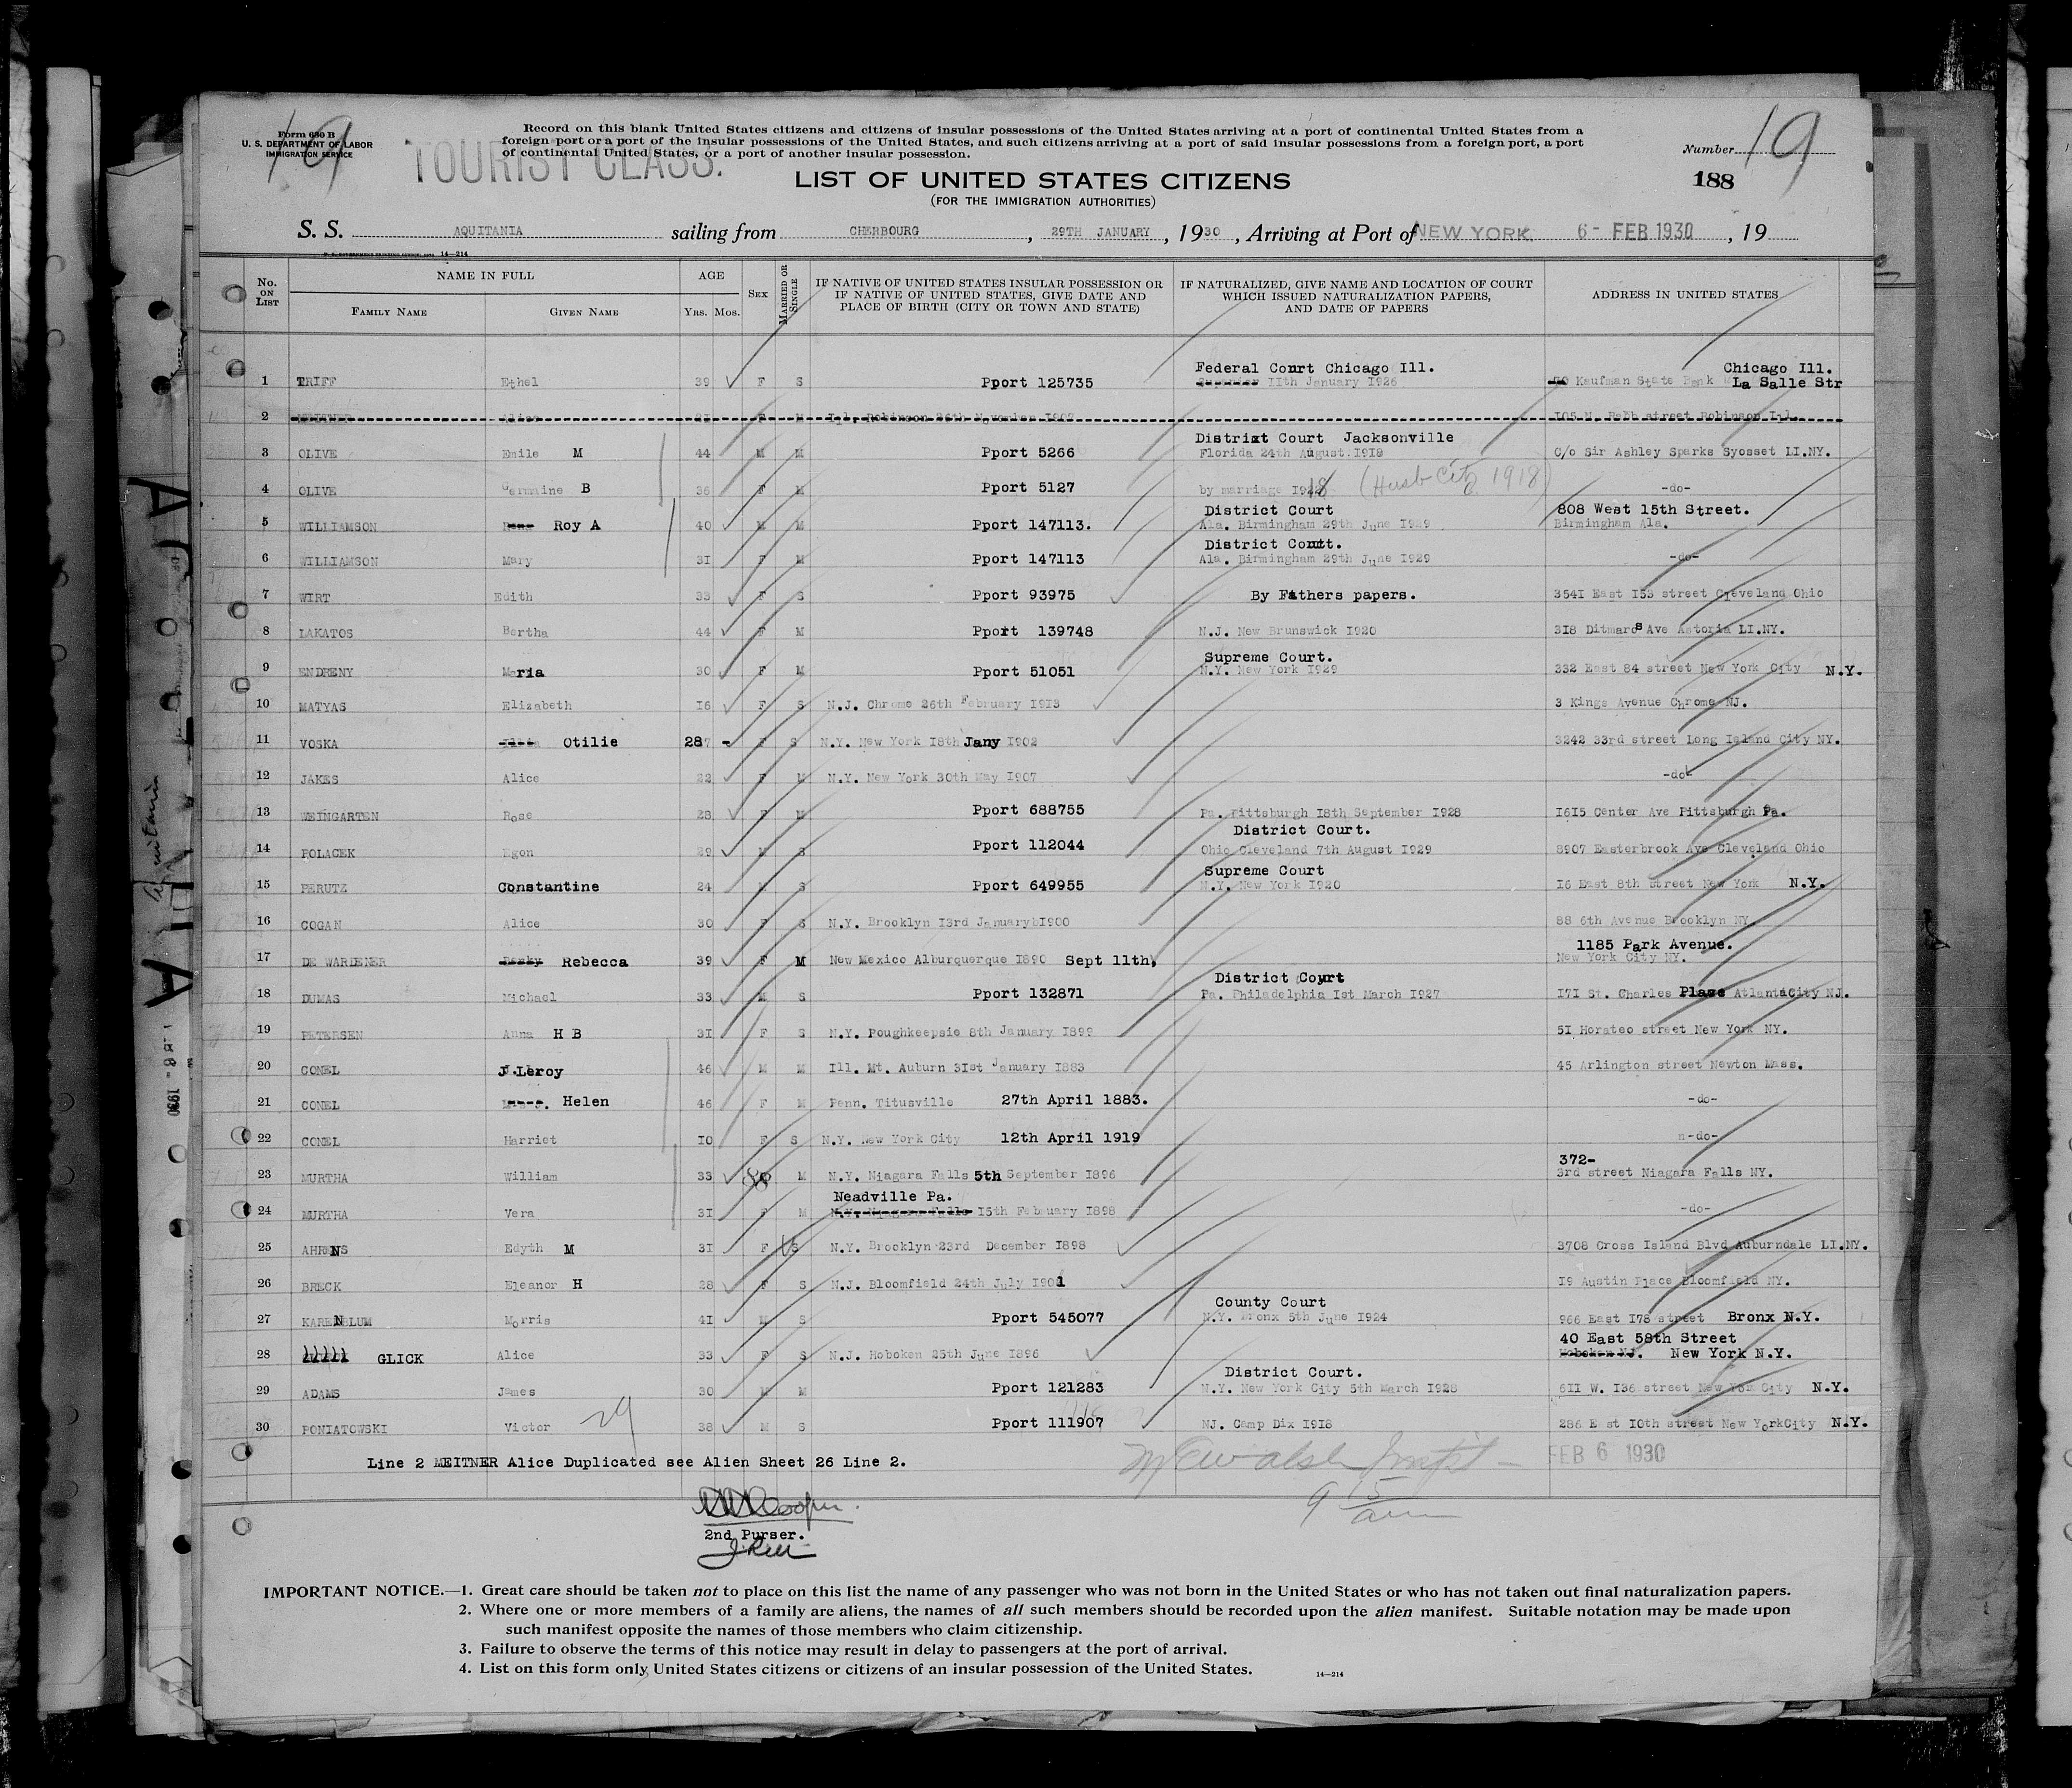 Form 630 B
U. S. DEPARTMENT OF LABOR
IMMIGRATION SERVICE
19
TOURIST CLASS.
Record on this blank United States citizens and citizens of insular possessions of the United States arriving at a port of continental United States from a
foreign port or a port of the insular possessions of the United States, and such citizens arriving at a port of said insular possessions from a foreign port, a port
of continental United States, or a port of another insular possession.
Number 19
188
LIST OF UNITED STATES CITIZENS
(FOR THE IMMIGRATION AUTHORITIES)
S. S. AQUITANIA sailing from CHERBOURG, 29TH JANUARY, 1930, Arriving at Port of NEW YORK 6- FEB 1930, 19
14-214
No. ON LIST
NAME IN FULL
FAMILY NAME
GIVEN NAME
AGE
YRS. MOS.
SEX
MARRIED OR SINGLE
IF NATIVE OF UNITED STATES INSULAR POSSESSION OR
IF NATIVE OF UNITED STATES, GIVE DATE AND
PLACE OF BIRTH (CITY OR TOWN AND STATE)
IF NATURALIZED, GIVE NAME AND LOCATION OF COURT
WHICH ISSUED NATURALIZATION PAPERS,
AND DATE OF PAPERS
ADDRESS IN UNITED STATES
Federal Court Chicago Ill. Chicago Ill.
1 TRIFF Ethel 39 F S Pport 125735 11th January 1926 Kaufman State Bank La Salle Str
2 MEITNER Alice 21 F M Ill. Robinson 26th November 1902 105 N. Robb street Robinson Ill.
District Court Jacksonville
3 OLIVE Emile M 44 M M Pport 5266 Florida 24th August 1918 C/o Sir Ashley Sparks Syosset LI.NY.
4 OLIVE Germaine B 36 F M Pport 5127 by marriage 1918 (Husb Citz 1918) -do-
District Court 808 West 15th Street.
5 WILLIAMSON Roy A 40 M M Pport 147113. Ala. Birmingham 29th June 1929 Birmingham Ala.
District Court.
6 WILLIAMSON Mary 31 F M Pport 147113 Ala. Birmingham 29th June 1929 -do-
7 WIRT Edith 33 F S Pport 93975 By Fathers papers. 3541 East 153 street Cleveland Ohio
8 LAKATOS Bertha 44 F M Pport 139748 N.J. New Brunswick 1920 318 Ditmars Ave Astoria LI.NY.
Supreme Court.
9 ENDRENY Maria 30 F M Pport 51051 N.Y. New York 1929 332 East 84 street New York City N.Y.
10 MATYAS Elizabeth 16 F S N.J. Chrome 26th February 1913 3 Kings Avenue Chrome NJ.
11 VOSKA Otilie 28 - F S N.Y. New York 18th Jany 1902 3242 33rd street Long Island City NY.
12 JAKES Alice 22 F M N.Y. New York 30th May 1907 -do-
13 WEINGARTEN Rose 28 F M Pport 688755 Pa. Pittsburgh 18th September 1928 1615 Center Ave Pittsburgh Pa.
District Court.
14 POLACEK Egon 29 M S Pport 112044 Ohio Cleveland 7th August 1929 8907 Easterbrook Ave Cleveland Ohio
Supreme Court
15 PERUTZ Constantine 24 M S Pport 649955 N.Y. New York 1920 16 East 8th street New York N.Y.
16 COGAN Alice 30 F S N.Y. Brooklyn 13rd Januarybl900 88 6th Avenue Brooklyn NY.
1185 Park Avenue.
17 DE WARDENER Rebecca 39 F M New Mexico Alburquerque 1890 Sept 11th, New York City NY.
District Court
18 DUMAS Michael 33 M S Pport 132871 Pa. Philadelphia 1st March 1927 171 St. Charles Place AtlantiCity NJ.
19 PETERSEN Anna H B 31 F S N.Y. Poughkeepsie 8th January 1899 51 Horateo street New York NY.
20 CONEL J.Leroy 46 M M Ill. Mt. Auburn 31st January 1883 45 Arlington street Newton Mass.
21 CONEL Helen 46 F M Penn. Titusville 27th April 1883. -do-
22 CONEL Harriet 10 F S N.Y. New York City 12th April 1919 n-do-
372-
23 MURTHA William 33 M M N.Y. Niagara Falls 5th September 1896 3rd street Niagara Falls NY.
Neadville Pa.
24 MURTHA Vera 31 F M N.Y. Niagara Falls 15th Febuary 1898 -do-
25 AHRENS Edyth M 31 F S N.Y. Brooklyn 23rd December 1898 3708 Cross Island Blvd Auburndale LI.NY.
26 BRECK Eleanor H 28 F S N.J. Bloomfield 24th July 1901 19 Austin Place Bloomfield NY.
County Court
27 KARENBLUM Morris 41 M S Pport 545077 N.Y. Bronx 5th June 1924 966 East 178 street Bronx N.Y.
40 East 58th Street
28 GLICK Alice 33 F S N.J. Hoboken 25th June 1896 Hoboken NJ. New York N.Y.
District Court.
29 ADAMS James 30 M M Pport 121283 N.Y. New York City 5th March 1928 611 W. 136 street New York City N.Y.
30 PONIATOWSKI Victor 29 38 M S Pport 111907 NJ. Camp Dix 1918 286 East 10th street New YorkCity N.Y.
Line 2 MEITNER Alice Duplicated see Alien Sheet 26 Line 2.
FEB 6 1930
9 15 am
2nd Purser.
IMPORTANT NOTICE.—1. Great care should be taken not to place on this list the name of any passenger who was not born in the United States or who has not taken out final naturalization papers.
2. Where one or more members of a family are aliens, the names of all such members should be recorded upon the alien manifest. Suitable notation may be made upon
such manifest opposite the names of those members who claim citizenship.
3. Failure to observe the terms of this notice may result in delay to passengers at the port of arrival.
4. List on this form only United States citizens or citizens of an insular possession of the United States.
14-214